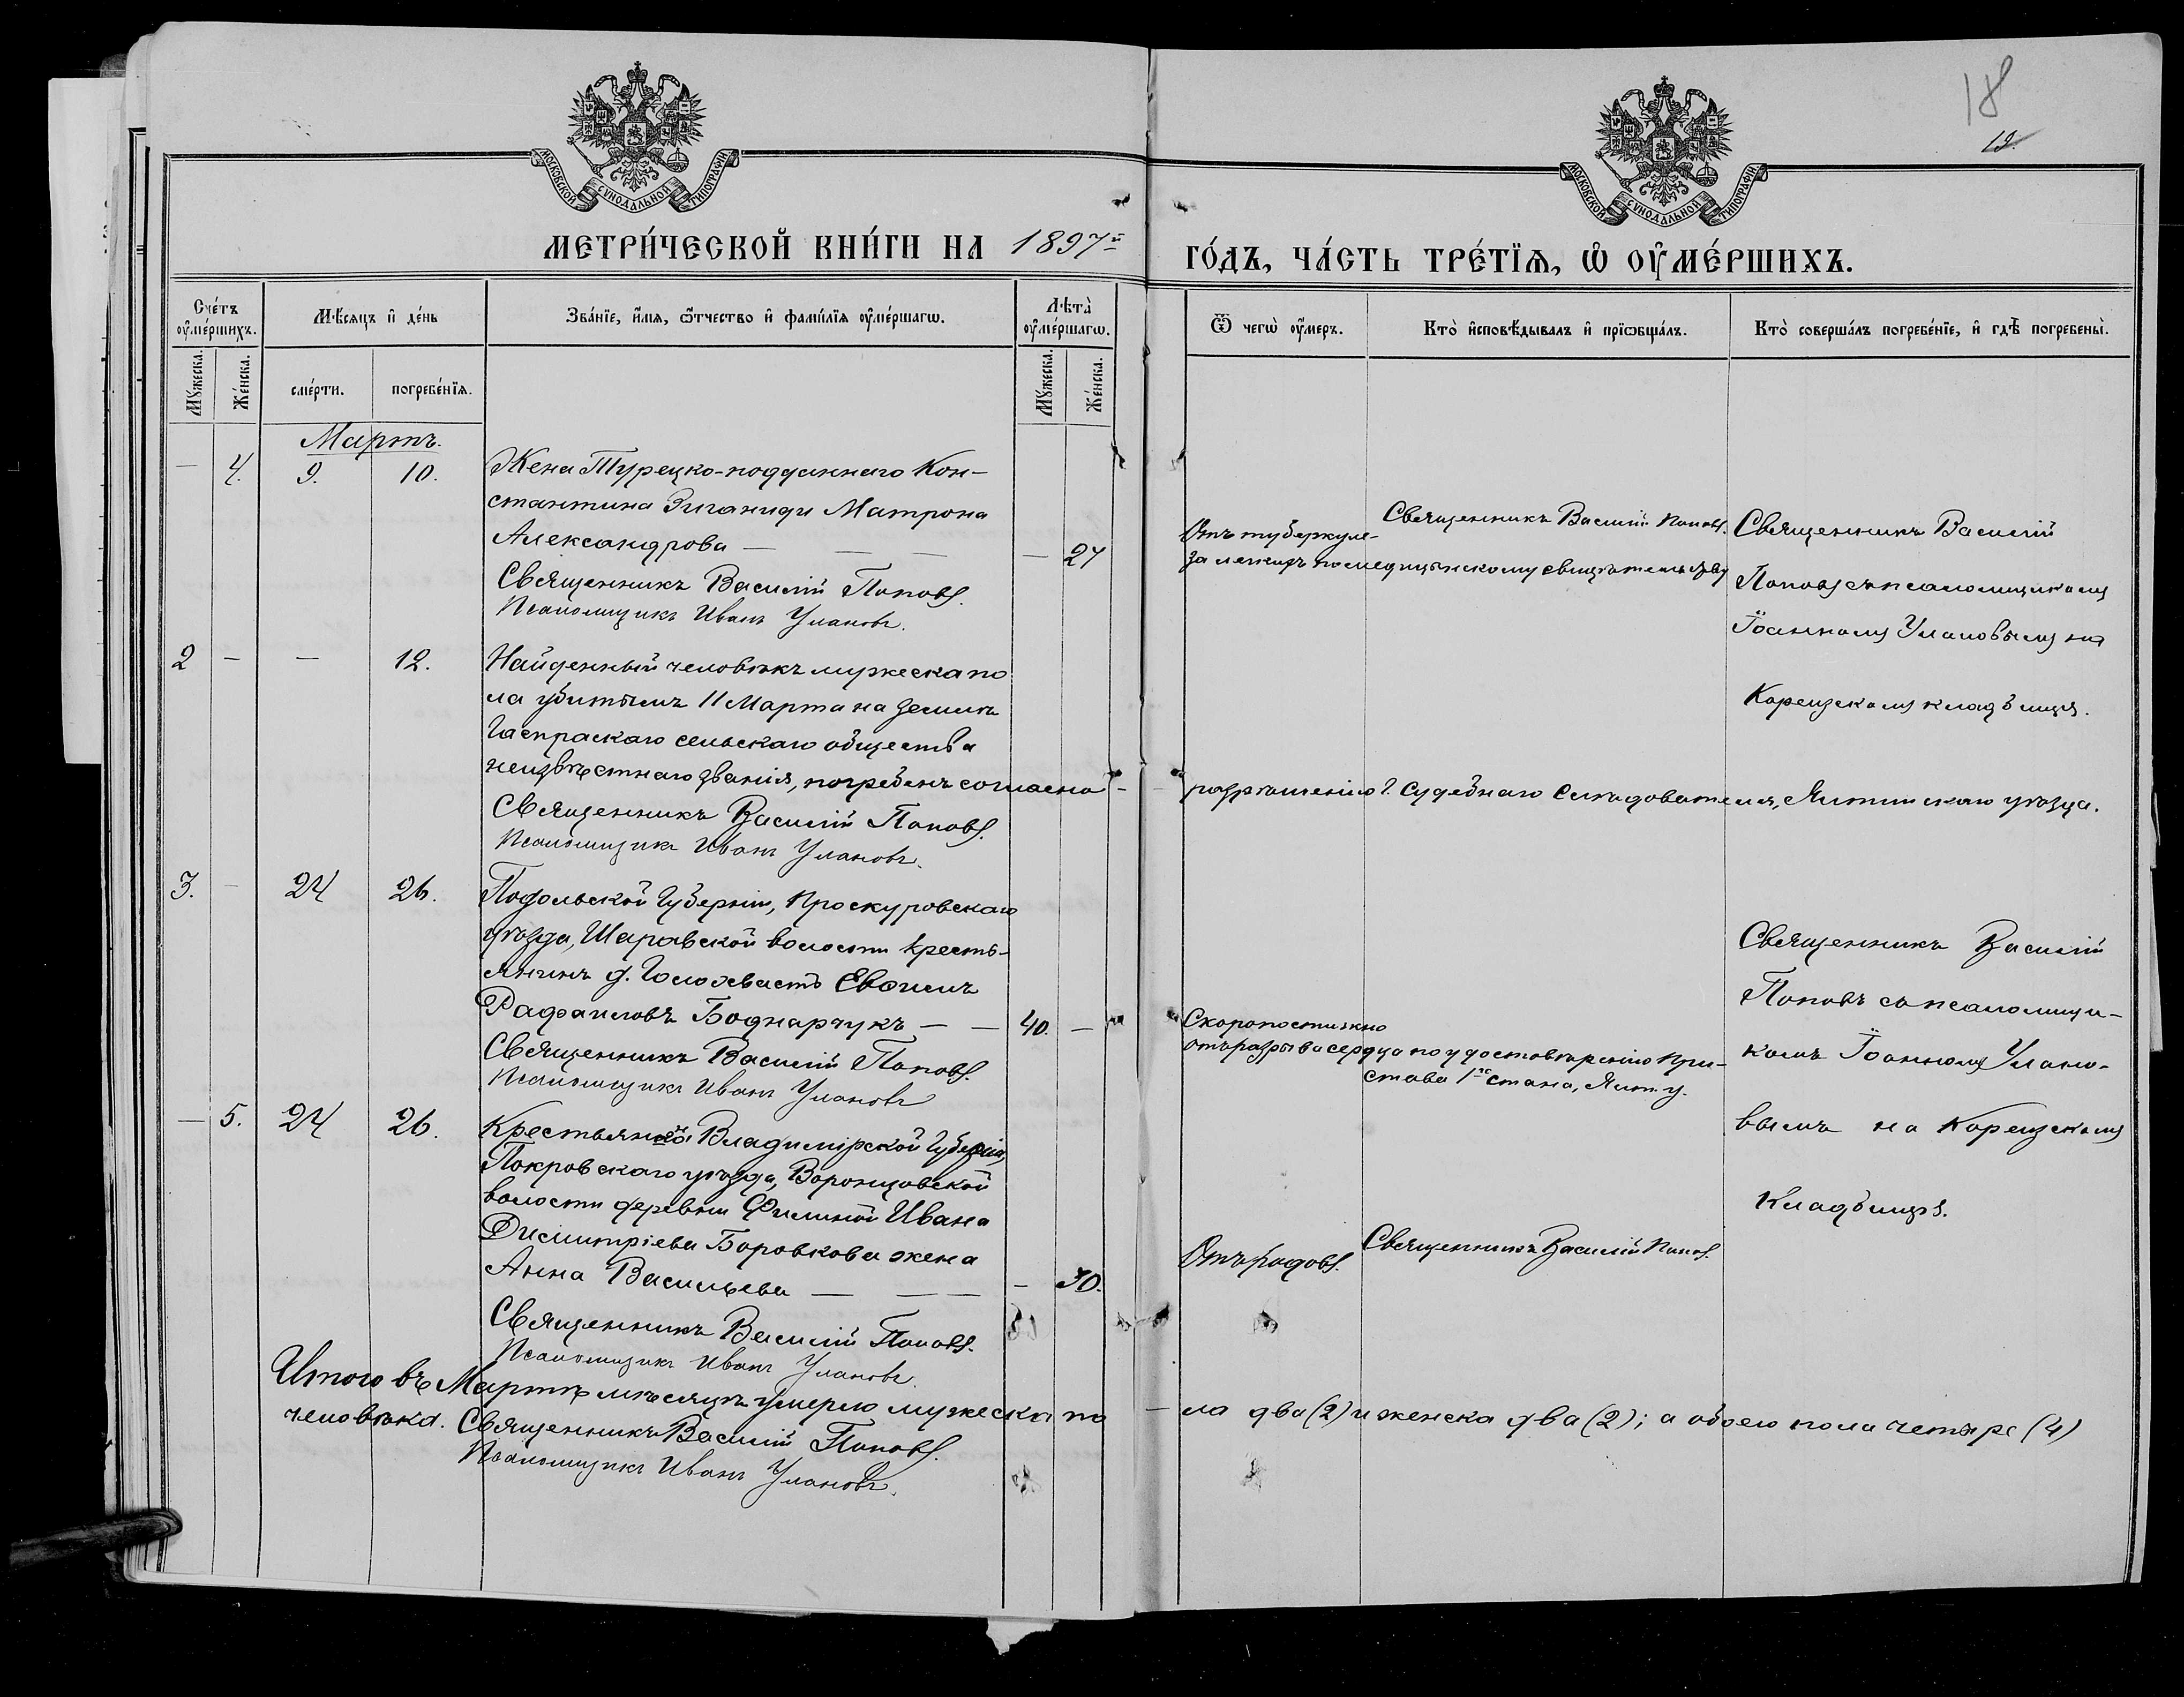 18
19.
МОСКОВСКОЙ СѴНОДАЛЬНОЙ ТИПОГРАФІИ
МОСКОВСКОЙ СѴНОДАЛЬНОЙ ТИПОГРАФІИ
МЕТРИ́ЧЕСКОЙ КНИ́ГИ НА 1897й
ГО́ДЪ, ЧА́СТЬ ТРЕ́ТІѦ, Ѡ ОУ҆МЕ́РШИХЪ.
Сче́тъ оу҆ме́ршихъ.
Мѣ́сяцъ и҆ де́нь
Зва́нїе, и҆́мѧ, ѻ҆́тчество и҆ фами́лїѧ оу҆ме́ршагѡ.
Лѣта̀ оу҆ме́ршагѡ.
Ѿ чегѡ̀ оу҆́меръ.
Кто̀ и҆сповѣ́дывалъ и҆ прїѡбща́лъ.
Кто̀ соверша́лъ погребе́нїе, и҆ гдѣ̀ погребены̀.
Мꙋ́жеска.
Же́нска.
сме́рти.
погребе́нїѧ.
Мꙋ́жеска.
Же́нска.
Мартъ.
— 4. 9. 10. Жена Турецко-подданнаго Кон-
стантина Зиганиди Матрона
Александрова — — — — 27
Священникъ Василій Поповъ.
Псаломщикъ Иванъ Улановъ.
Отъ туберкуле-
за легкихъ по медицинскому свидѣтельству
Священникъ Василій Поповъ.
Священникъ Василій
Поповъ съ псаломщикомъ
Іоанномъ Улановымъ на
Кореизскомъ кладбищѣ.
2 — — 12. Найденный человѣкъ мужеска по
ла убитымъ 11 Марта на землѣ
Гаспраскаго сельскаго общества
неизвѣстнаго званія, погребенъ согласно -
разрѣшенію г. Судебнаго Слѣдователя, Ялтинскаго уѣзда.
Священникъ Василій Поповъ.
Псаломщикъ Иванъ Улановъ.
3. - 24 26. Подольской Губерніи, Проскуровскаго
уѣзда, Шаровской волости кресть-
янинъ д. Голохвастъ Евѳимъ
Рафаиловъ Боднарчукъ — — 40. —
Священникъ Василій Поповъ.
Псаломщикъ Иванъ Улановъ
Скоропостижно
отъ разрыва сердца по удостовѣренію При-
става 1го стана, Ялт. у.
Священникъ Василій
Поповъ съ псаломщи-
комъ Іоанномъ Улано-
вымъ на Кореизскомъ
Кладбищѣ.
— 5. 24 26. Владимірской Губерніи,
Покровскаго уѣзда, Воронцовской
волости деревни Филиной Ивана
Димитріева Боровкова жена
Анна Васильева — — — - 30.
Священникъ Василій Поповъ.
Псаломщикъ Иванъ Улановъ.
Отъ родовъ.
Священникъ Василій Поповъ.
Итого въ Мартѣ мѣсяцѣ умерло мужеска по — ла два (2) и женска два (2); а обоего пола четыре (4)
человѣка. Священникъ Василій Поповъ.
Псаломщикъ Иванъ Улановъ.